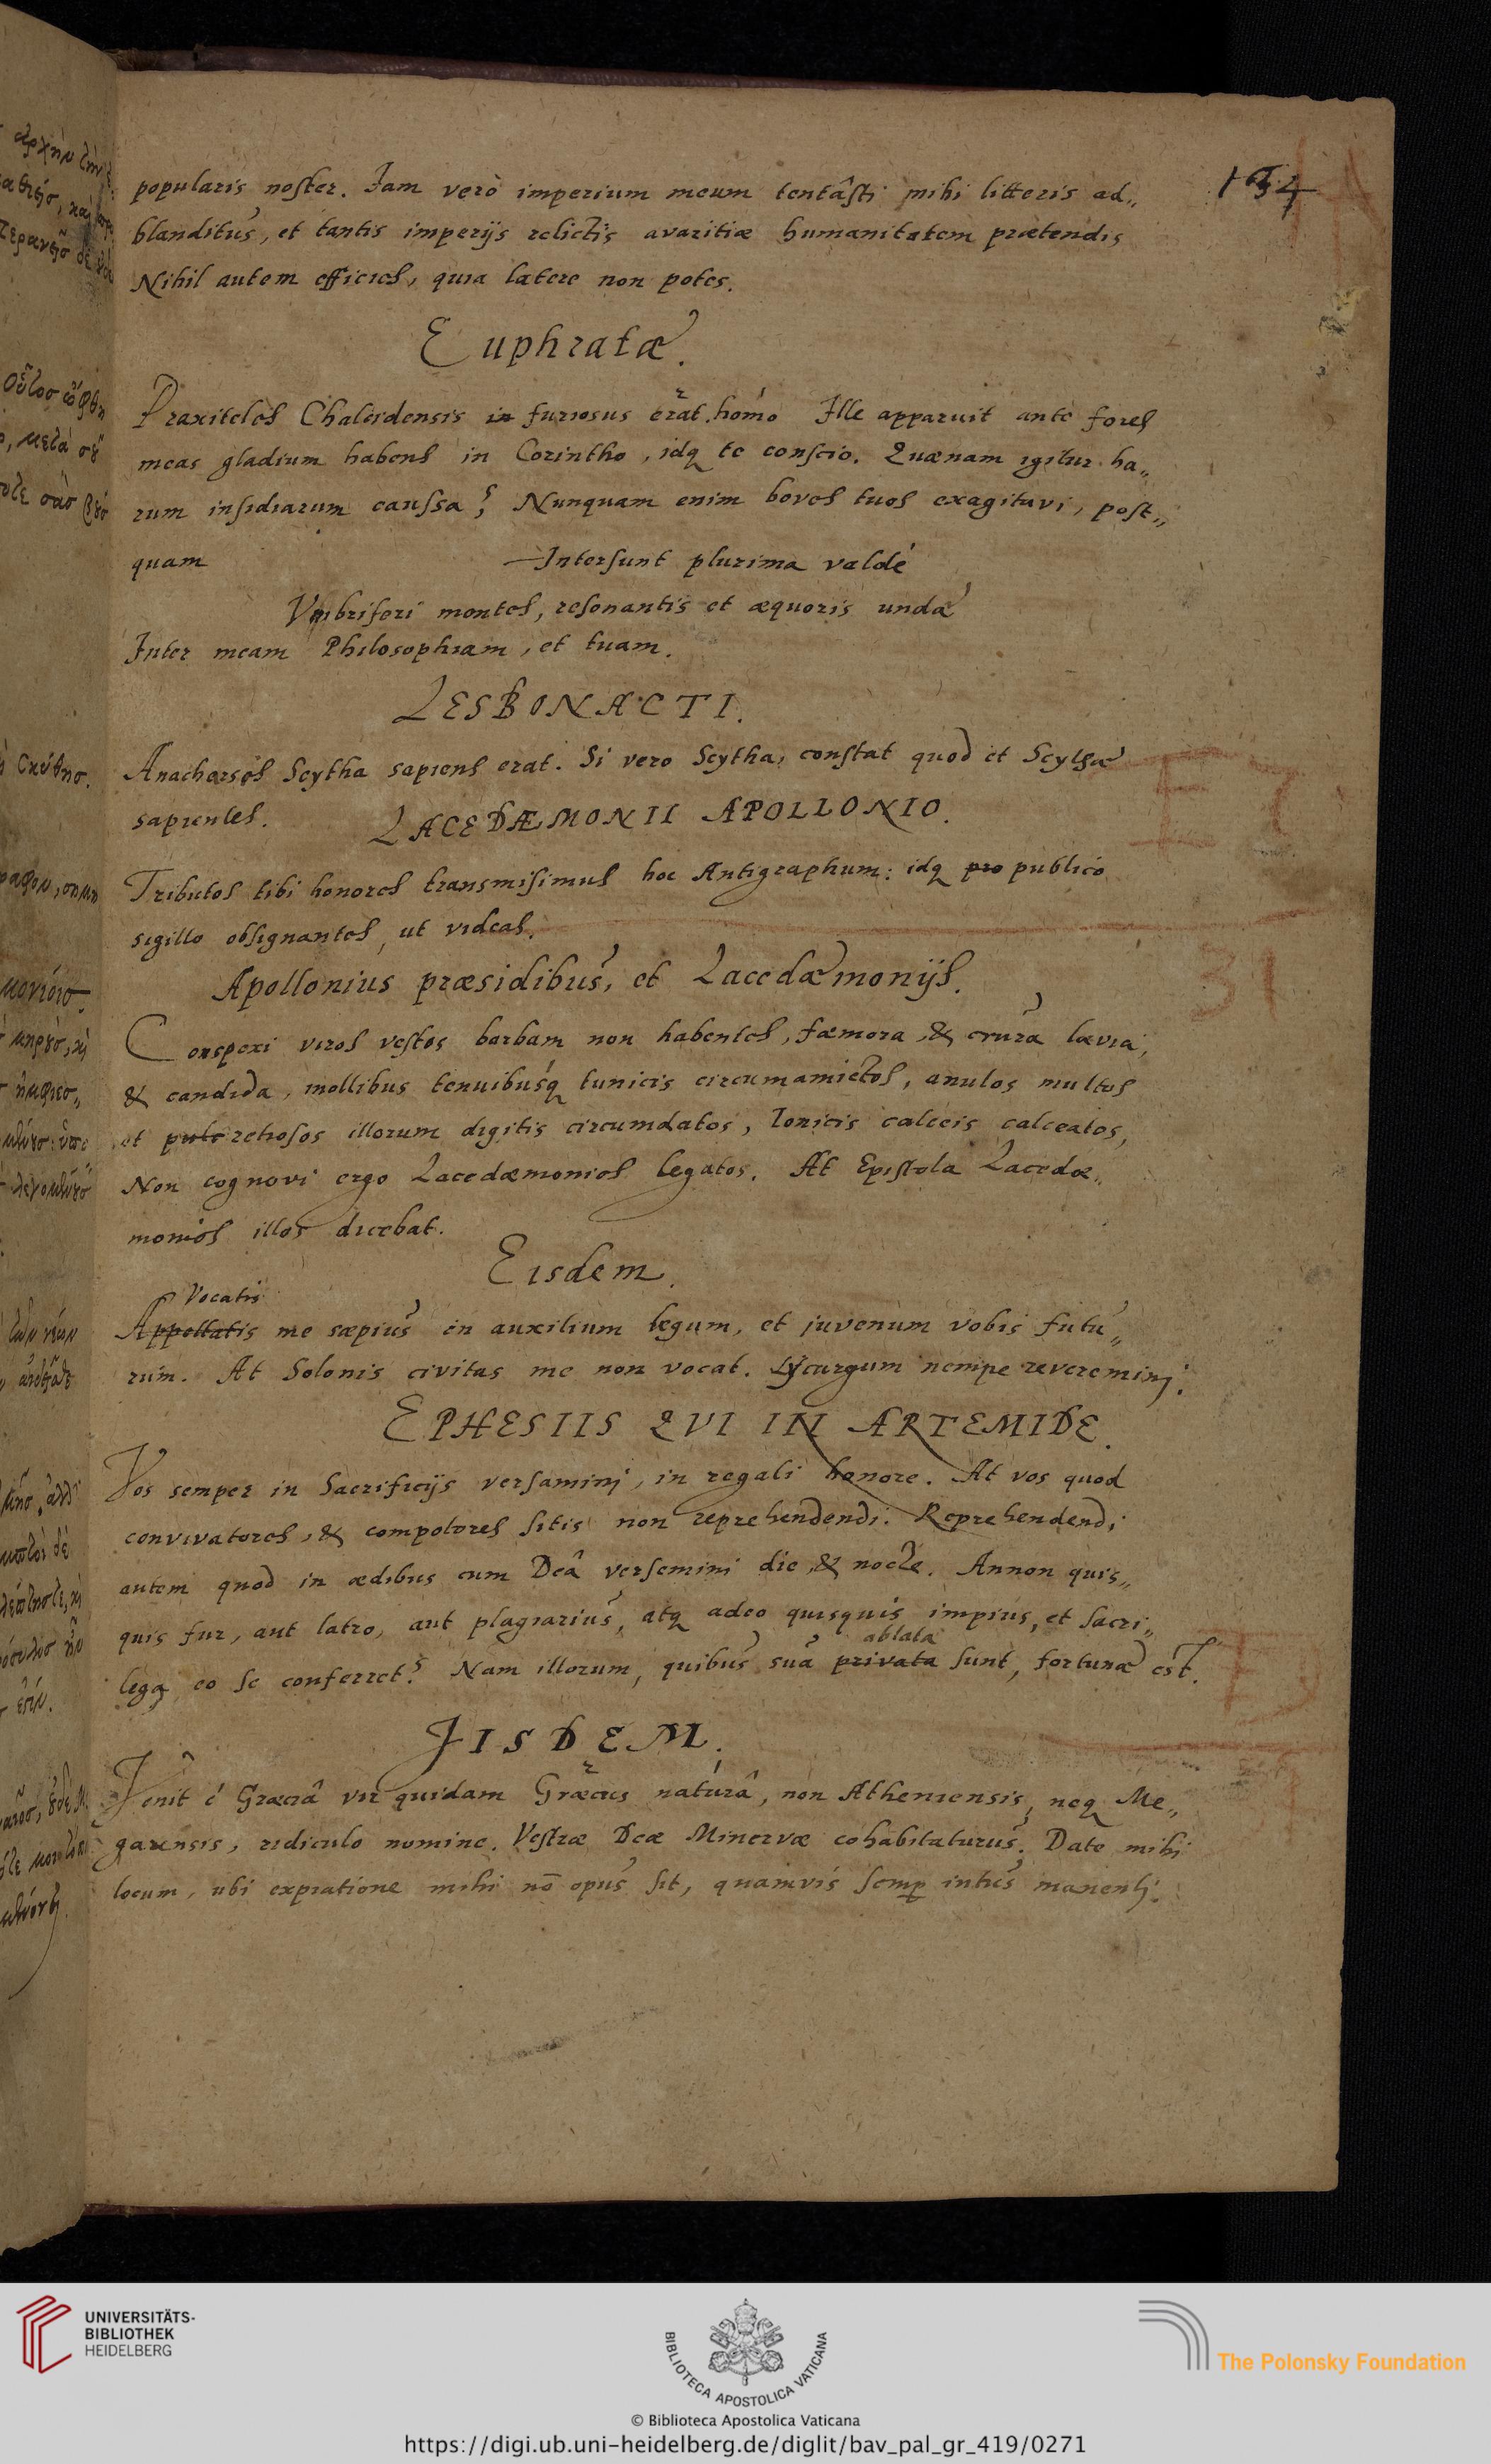 popularis noster. Iam verò imperium meum tentâsti mihi litteris ad„
blanditus, et tantis imperijs relictis avaritiæ humanitatem prætendis
Nihil autem efficies, quia latere non potes.
Euphratæ.
Praxiteles Chalcidensis in furiosus erat homo Ille apparuit ante fores
meas gladium habens in Corintho, idq te conscio. Quænam igitur ha„
rum insidiarum caussa? Nunquam enim boves tuos exagitavi, post„
quam —Intersunt plurima valdé
Vmbriferi montes, resonantis et æquoris undæ
Inter meam Philosophiam, et tuam.
LESBONACTI.
Anacharses Scytha sapiens erat. Si vero Scytha, constat quod et Scythæ
sapientes.
LACEDÆMONII APOLLONIO.
Tributos tibi honores transmisimus hoc Antigraphum: idq pro publico
sigillo obsignantes, ut videas.
Apollonius præsidibus, et Lacedæmonijs.
Conspexi viros vestos barbam non habentes, fæmora & crura lævia,
& candida, mollibus tenuibusq tunicis circumamictos, anulos multos
et retiosos illorum digitis circumdatos, Ionicis calceis calceatos,
Non cognovi ergo Lacedæmonios legatos. At Epistola Lacedæ„
monios illos dicebat.
Eisdem.
Vocatis
Appellatis me sæpius in auxilium legum, et juvenum vobis futu„
rum. At Solonis civitas me non vocat. Lycurgum nempe reveremini.
EPHESIIS QVI IN ARTEMIDE.
Vos semper in Sacrificijs versamini, in regali honore. At vos quod
convivatores, & compotores sitis non reprehendendi. Reprehendendi
autem quod in ædibus cum Deâ versemini die & nocte. Annon quis„
quis fur, aut latro, aut plagiarius, atq adeo quisquis impius, et sacri„
legq eo se conferret? Nam illorum, quibus sua privata sunt, fortunæ est.
ablata
IISDEM.
Venit é Græciâ vir quidam Græcus naturâ, non Atheniensis, neq Me„
garensis, ridiculo nomine. Vestræ Deæ Minervæ cohabitaturus. Date mihi
locum, ubi expiatione mihi nō opus sit, quamvis semp intus manenti.
31
UNIVERSITÄTS-
BIBLIOTHEK
HEIDELBERG
BIBLIOTECA APOSTOLICA VATICANA
The Polonsky Foundation
© Biblioteca Apostolica Vaticana
https://digi.ub.uni-heidelberg.de/diglit/bav_pal_gr_419/0271